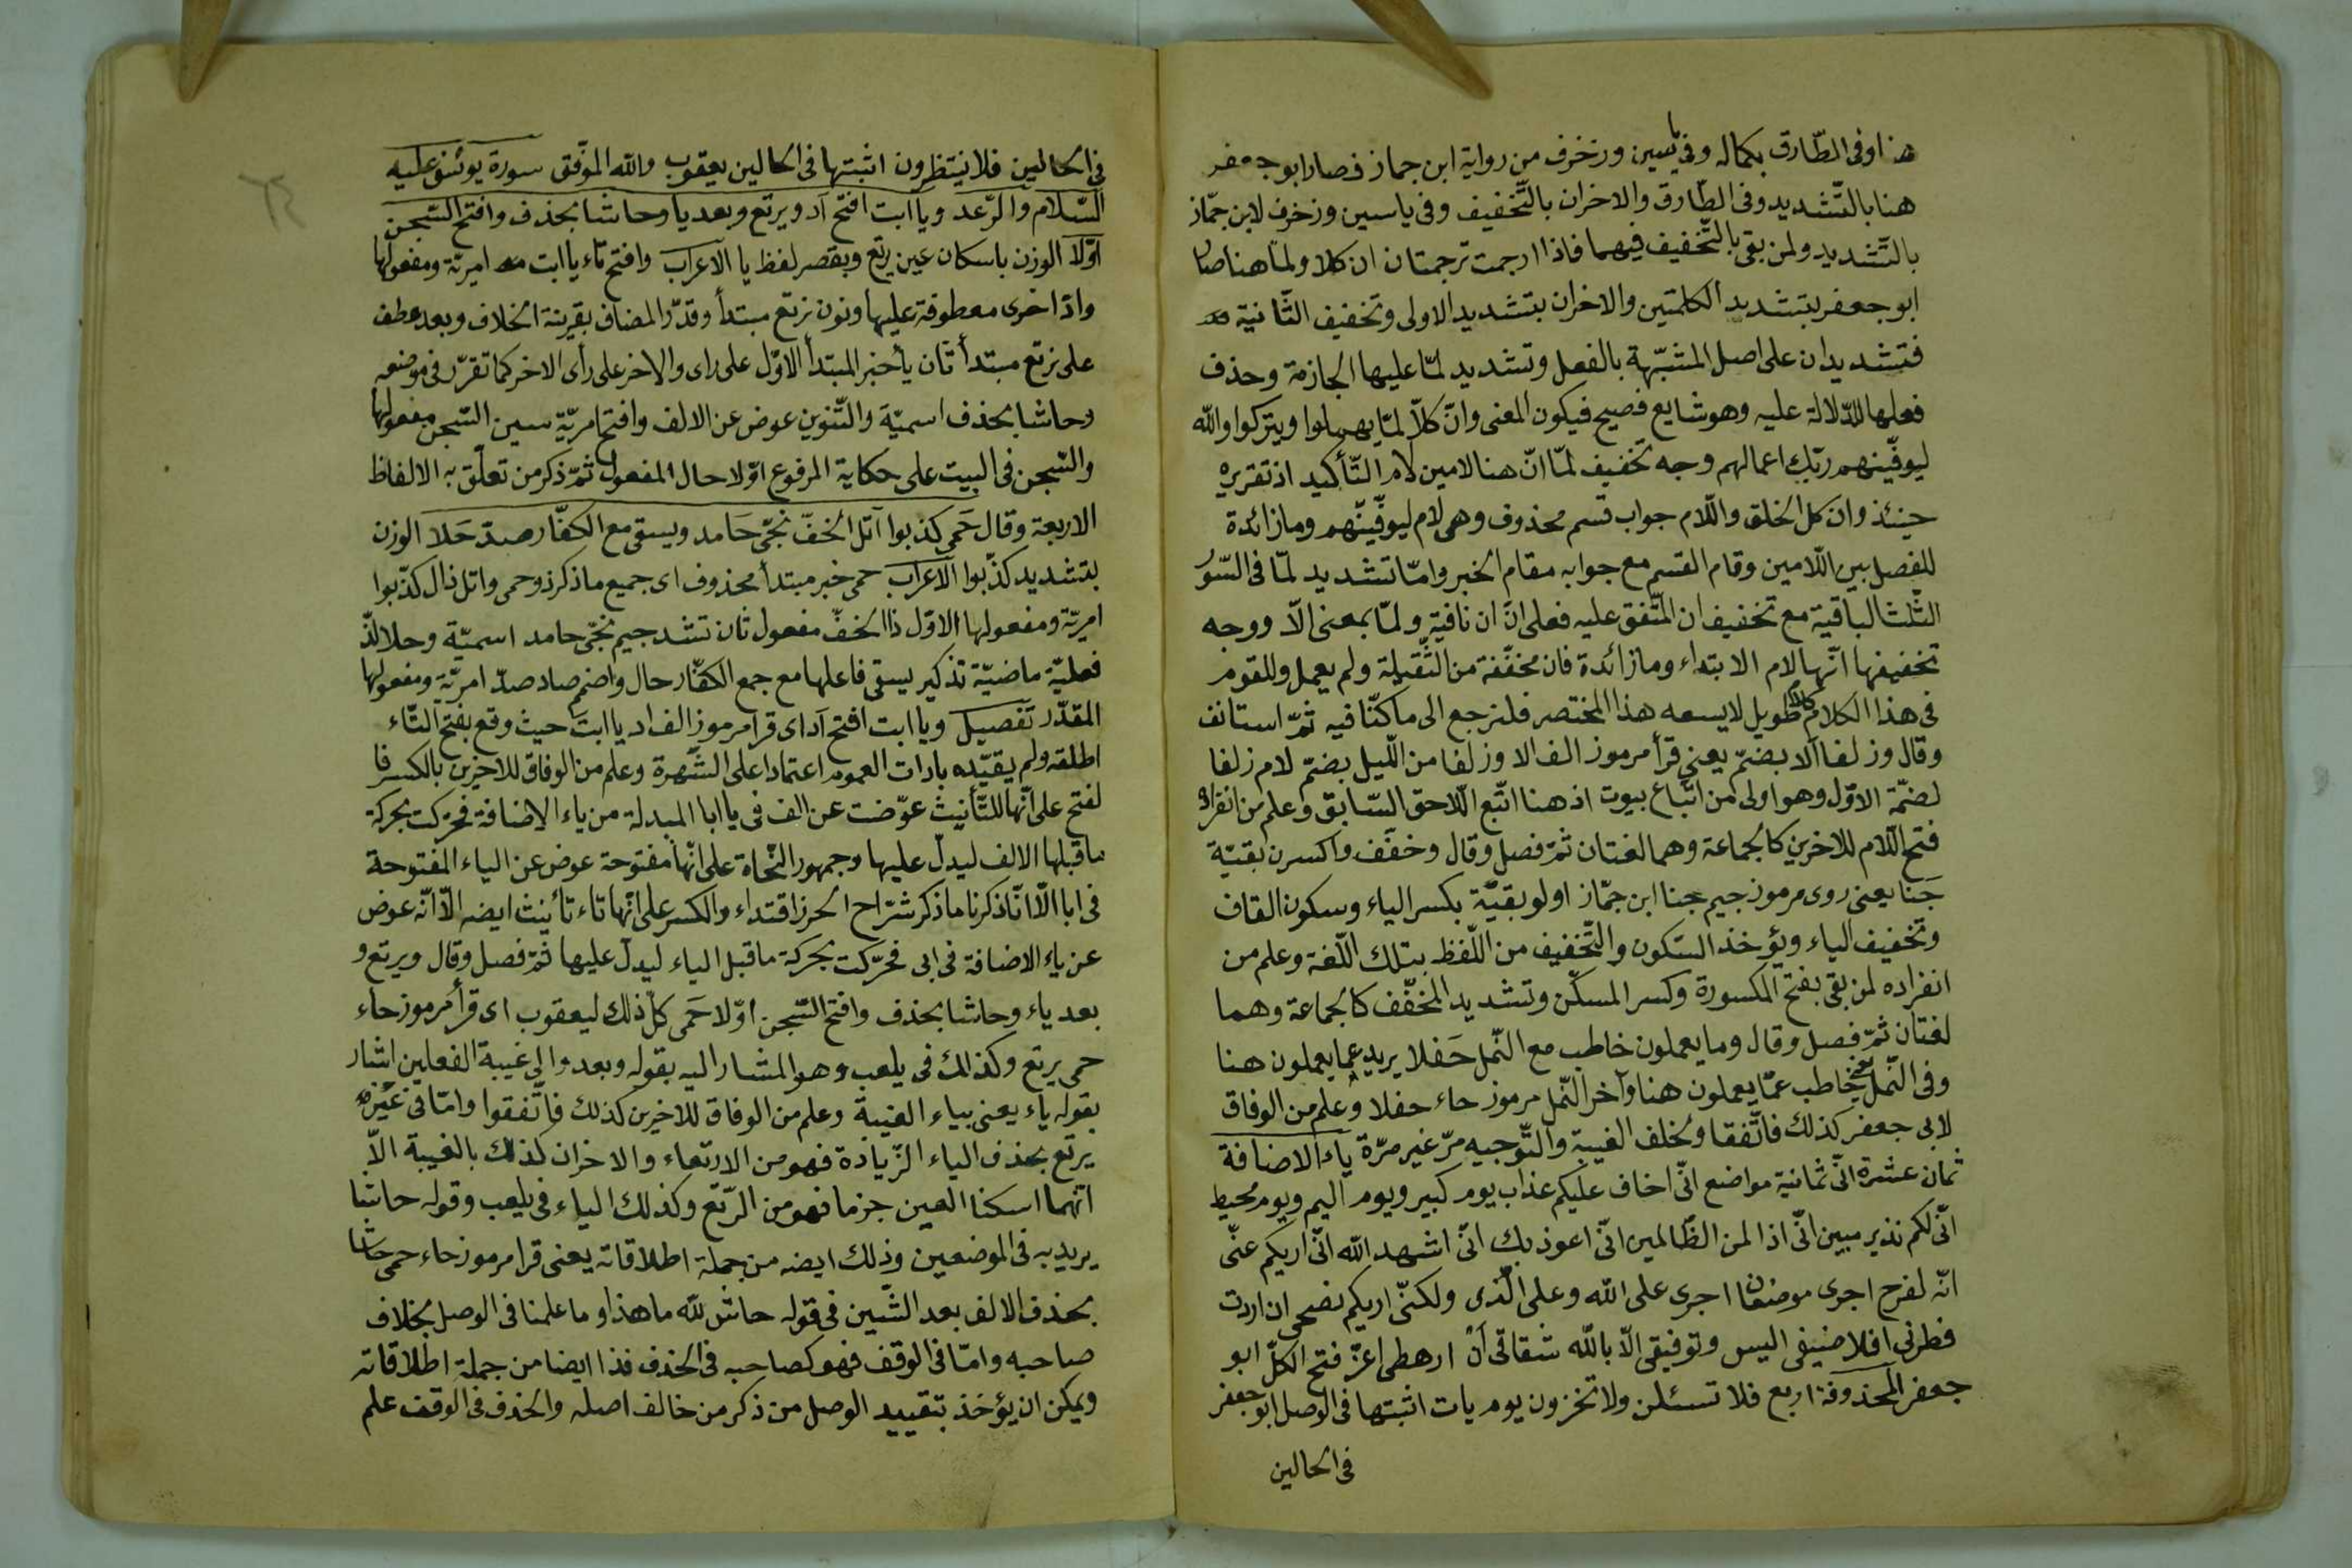 هنا وفى الطّارق بكماله وفى يٰسين وزخرف من رواية ابن جماز فصار ابو جعفر
هنا بالتّشديد وفى الطّارق والاخران بالتّخفيف وفى ياسين وزخرف لابن جمّاز
بالتّشديد ولمن بقى بالتّخفيف فيهما فاذا ارجمت ترجمتان ان كلا ولمّا هنا صار
ابو جعفر بتشديد الكلمتين والاخران بتشديد الاولى وتخفيف الثّانية
فتشديدان على اصل المشبّهة بالفعل وتشديد لمّا عليها الجازمة وحذف
فعلها للدّلالة عليه وهو شايع فصيح فيكون المعنى وانّ كلاّ لمّا يهملوا ويتركوا والله
ليوفّينهم ربّك اعمالهم وجه تخفيف لمّا انّ هنا لامين لام التّأكيد اذ تقريره
حينئذ وان كل الخلق واللّام جواب قسم محذوف وهى لام ليوفّينّهم وما زائدة
للفصل بين اللّامين وقام القسم مع جوابه مقام الخبر وامّا تشديد لمّا فى السّور
الثّلث الباقية مع تخفيف ان المتّفق عليه فعلى انّ ان نافية ولمّا بمعنى الاّ ووجه
تخفيفها انّها لام الابتداء وما زائدة فان مخفّفة من الثّقيلة ولم يعمل وللقوم
فى هذا الكلام كلام طويل لا يسعه هذا المختصر فلنرجع الى ما كنّا فيه ثمّ استانف
وقال وزلفا آلا بضمّ يعنى قرأ مرموز الف الا وزلفا من اللّيل بضمّ لام زلفا
لضمّة الاوّل وهو اولى من اتّباع بيوت اذ هنا اتّبع اللّاحق السّابق وعلم من انفراده
فتح اللّام للاخرين كالجماعة وهما لغتان ثمّ فصل وقال وخفّف واكسرن بقيّة
جَنا يعنى روى مرموز جيم جنا ابن جمّاز اولو بقيّة بكسر الباء وسكون القاف
وتخفيف الياء ويؤخذ السّكون والتّخفيف من اللّفظ بتلك اللّغة وعلم من
انفراده لمن بقى بفتح المكسورة وكسر المسكّن وتشديد المخفّف كالجماعة وهما
لغتان ثمّ فصل وقال وما يعملون خاطب مع النّمل حَفلا يريد عما يعملون هنا
وفى النّمل يعنى خاطب عمّا يعملون هنا وآخر النّمل مرموز حاء حفلا وعلم من الوفاق
لابى جعفر كذلك فاتّفقا ولخلف الغيبة والتّوجيه مرّ غير مرّة ياء الاضافة
ثمان عشرة انّى ثمانية مواضع انّى اخاف عليكم عذاب يوم كبير ويوم اليم ويوم محيط
انّى لكم نذير مبين انّى اذا لمن الظّالمين انّى اعوذ بك انّى اشهد الله انّى اريكم عنّى
انّه لفرح اجرى موضعان اجرى على الله وعلى الّذى ولكنّى اريكم نصحى ان اردت
فطرنى افلا ضيفى اليس وتوفيقى الاّ بالله شقاقى أنْ ارهطى اعزّ فتح الكلّ ابو
جعفر المحذوفة اربع فلا تسئلن ولا تخزون يوم يات اثبتها فى الوصل ابو جعفر
فى الحالين
فى الحالين فلا ينتظرون اثبتها فى الحالين يعقوب والله الموفّق سورة يوئنف عليه
السّلام والرّعد ويا ابت افتح آد ويرتع وبعد يا وحاشا بحذف وافتح السّجن
اوّلا الوزن باسكان عين يرتع وبقصر لفظ يا الاعراب وافتح تاء يا ابت امريّة ومفعولها
واد اخرى معطوفة عليها ونون نرتع مبتدأ وقدّر المضاف بقرينة الخلاف وبعد عطف
على نرتع مبتدأ ثان يأخبر المبتدأ الاوّل على رأى والاخر على رأى الاخر كما تقرّر فى موضعه
وحاشا بحذف اسميّة والتّنوين عوض عن الالف وافتح امريّة سين السّجن مفعولها
والسّجن فى البيت على حكاية المرفوع اوّلا حال المفعول ثمّ ذكر من تعلّق به الالفاظ
الاربعة وقال حَمى كذبوا آتل الخفّ نجّى حَامد ويسقى مع الكفّار صدّ حَلا الوزن
بتشديد كذّبوا الاعراب حمى خبر مبتدأ محذوف اى جميع ما ذكر ذو حمى واتل ذال كذّبوا
امريّة ومفعولها الاوّل ذا الخفّ مفعول ثان تشد جيم نجّى حامد اسميّة وحلا لذّ
فعليّة ماضيّة تذكير يسقى فاعلها مع جمع الكفّار حال واضمم صاد صدّ امريّة ومفعولها
المقدّر تفصيل ويا ابت افتح آد اى قرا مرموز الف اد يا ابتَ حيث وقع بفتح التّاء
اطلقه ولم يقيّده بادات العموم اعتمادا على الشّهرة وعلم من الوفاق للاخرين بالكسر فا
لفتح على انّها للتّأنيث عوّضت عن الف فى يا ابا المبدلة من ياء الاضافة فحرّكت بحركة
ما قبلها الالف ليدلّ عليها وجمهور النّحاة على انّها مفتوحة عوض عن الياء المفتوحة
فى ابا الاّ انّا ذكرنا ما ذكر شرّاح الحرز اقتداء والكسر على انّها تاء تأنيث ايضه الاّ انّه عوض
عن ياء الاضافة فى ابى فحرّكت بحركة ما قبل الياء ليدلّ عليها ثمّ فصل وقال ويرتع و
بعد ياء وحاشا بحذف وافتح السّجن اوّلا حَمى كلّ ذلك ليعقوب اى قرأ مرموز حاء
حمى يرتع وكذلك فى يلعب وهو المشار اليه بقوله وبعد والى غيبة الفعلين اشار
بقوله ياء يعنى بياء الغيبة وعلم من الوفاق للاخرين كذلك فاتّفقوا وامّا فى عَيْره
يرتع بحذف الياء الزّيادة فهو من الارتعاء والاخران كذلك بالغيبة الاّ
انّهما اسكنا العين جزما فهو من الرّتع وكذلك الياء فى يلعب وقوله حاشا
يريد به فى الموضعين وذلك ايضه من جملة اطلاقاته يعنى قرا مرموز حاء حمى حاشا
بحذف الالف بعد الشّين فى قوله حاش لله ما هذا وما علمنا فى الوصل بخلاف
صاحبه وامّا فى الوقف فهو كصاحبه فى الحذف فذا ايضا من جملة اطلاقاته
ويمكن ان يؤخذ بتقييد الوصل من ذكر من خالف اصله والحذف فى الوقف علم